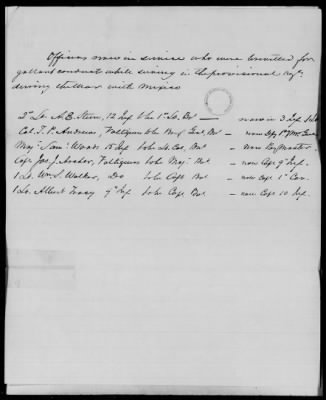 Officers now in service who were brevetted for
gallant conduct while serving in the provisional Regts
during the war with Mexico
2d Lt. A. E. Steen, 12 Inf to be 1st Lt. Bvt — now in 3 Inf
Col. T. P. Andrews, Voltigeurs to be Brig Genl. Bvt — now Dep
Maj. Saml Woods 15 Inf to be Lt. Col. Bvt — now Paymaster.
Capt Jos. J. Archer, Voltigeurs to be Maj. Bvt — now Capt 9th Inf.
1 Lt. Wm. S. Walker, Do to be Capt Bvt — now Capt 1st Cav.
1 Lt. Albert Tracy 9th Inf to be Capt Bvt — now Capt 10 Inf.